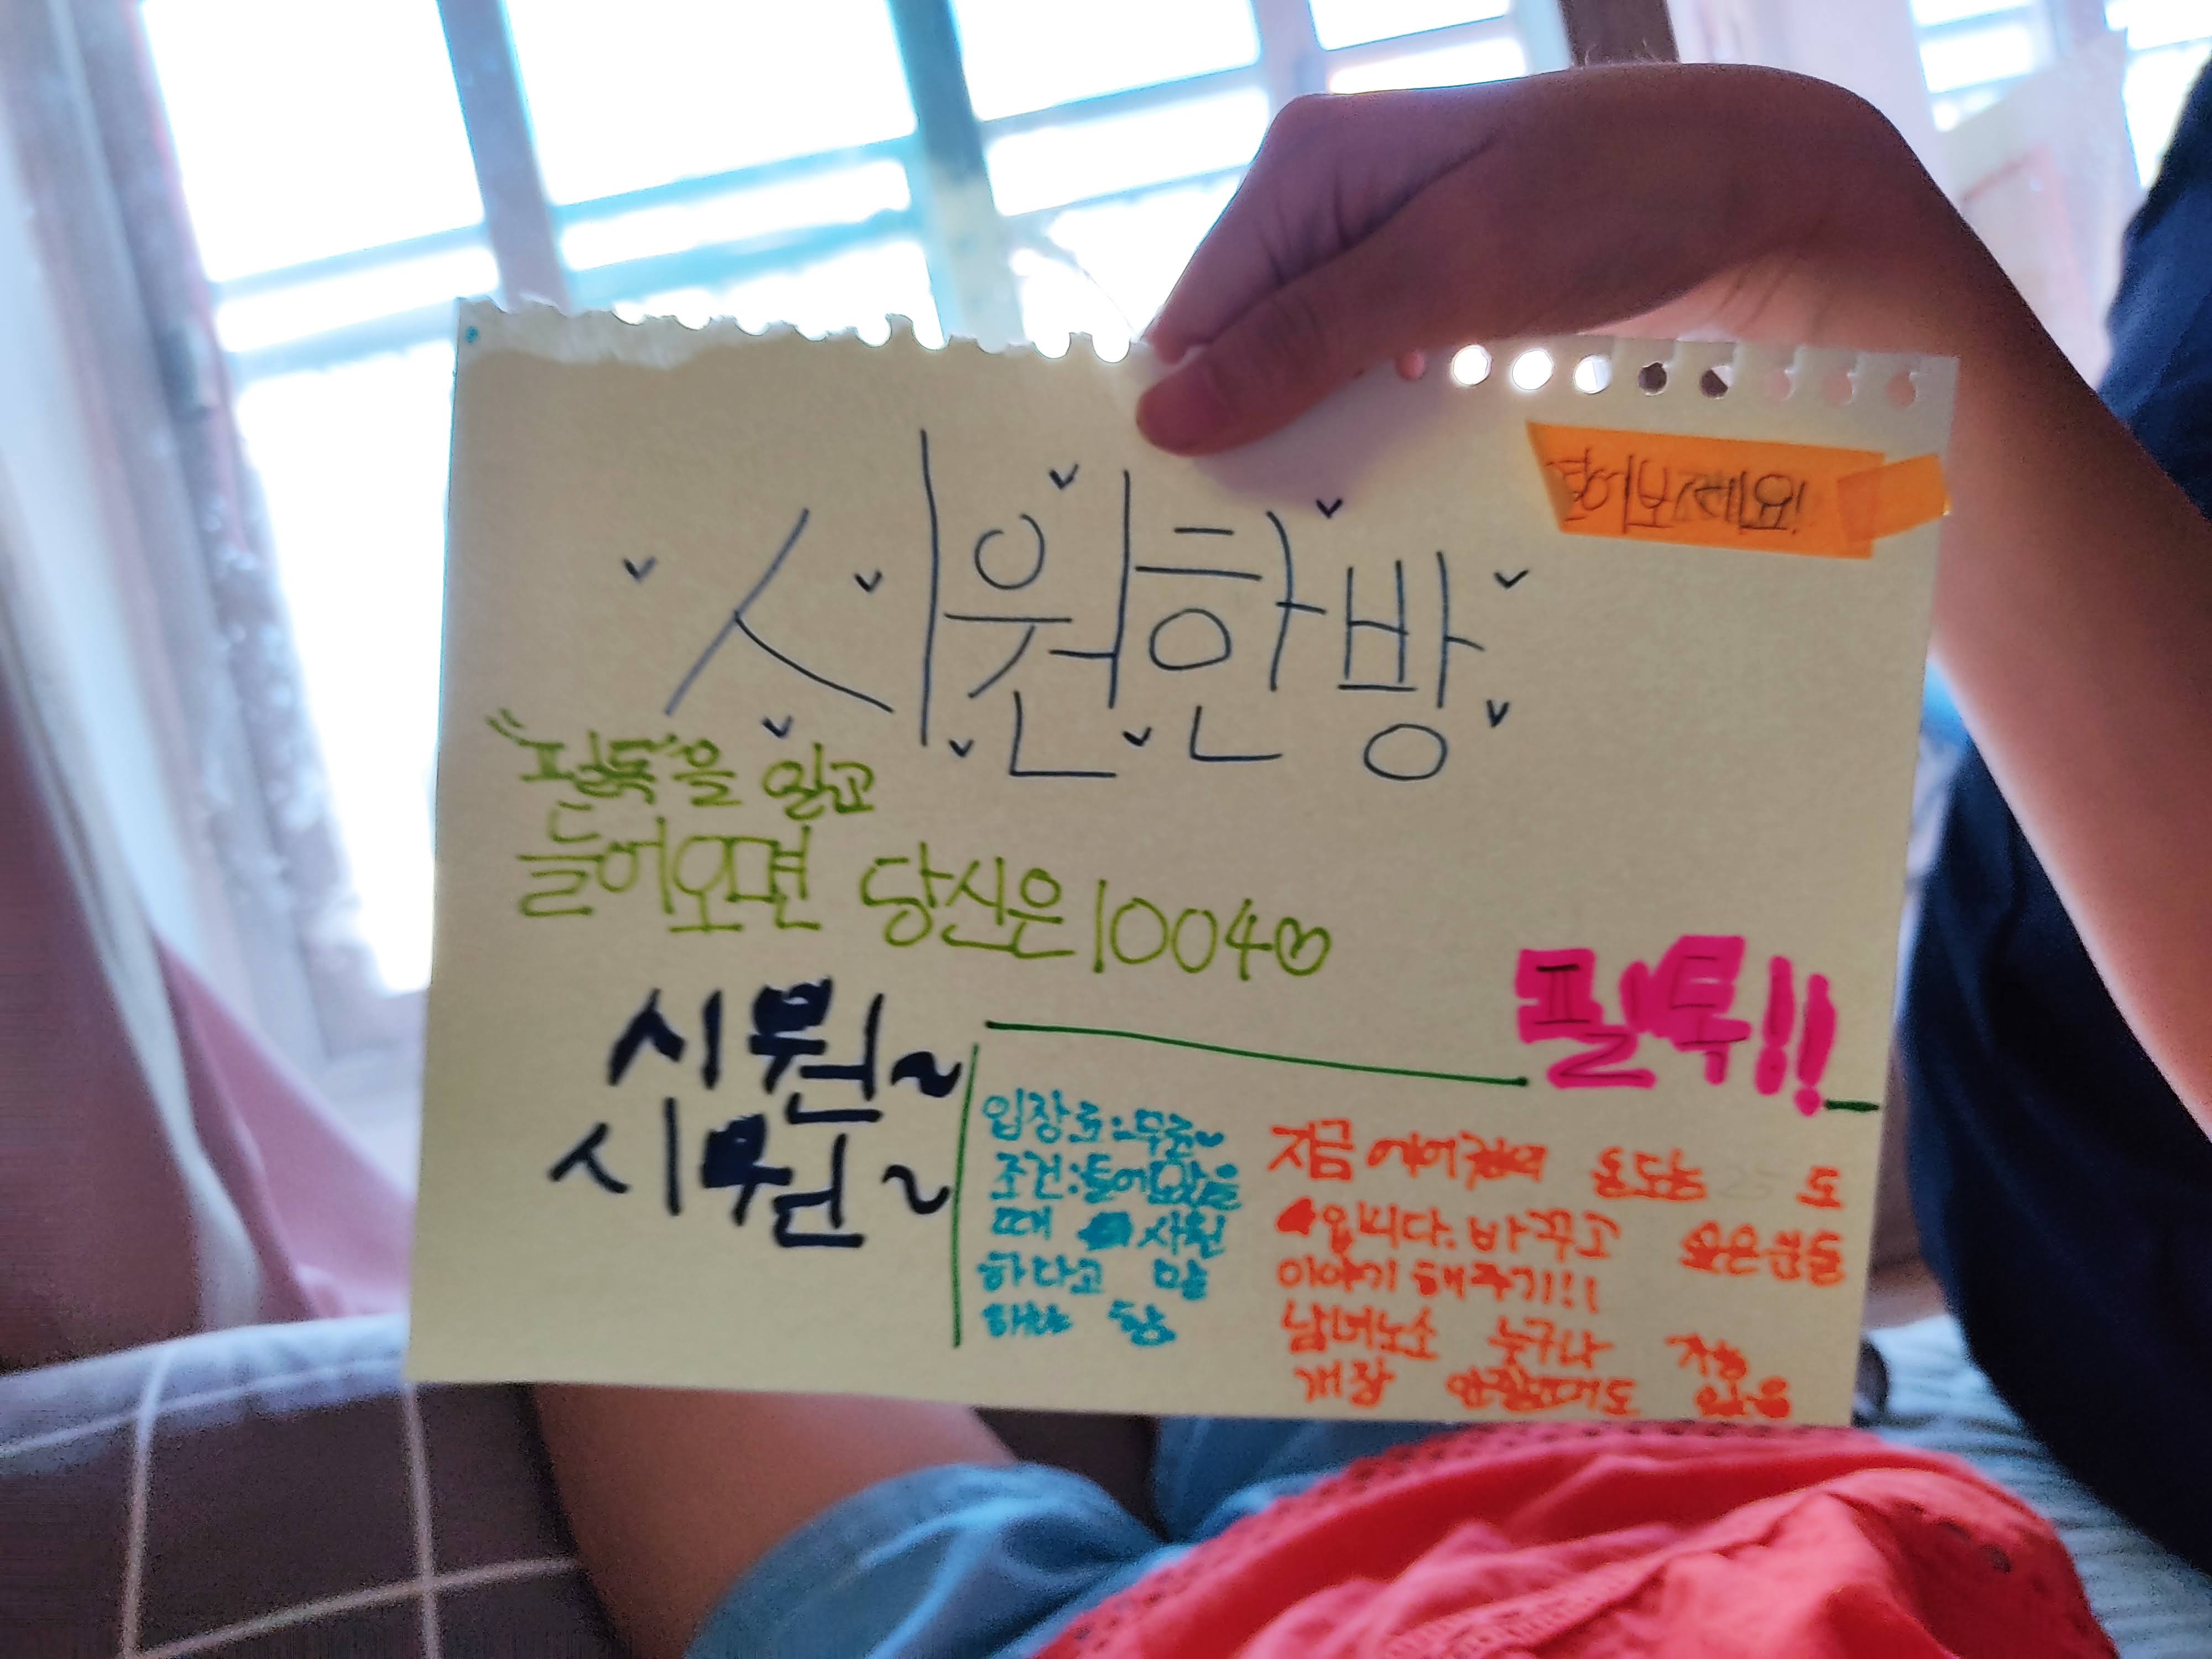 시원한방
열어보세요!
"필독"을 읽고
들어오면 당신은 1004♡
필독!!
시원~
시원~
입장료:무료
조건:들어왔을
때 시원
하다고 말
해야 함
지금 에어컨의 온도는 25 도
입니다. 바꾸고 싶은분들
이야기 해주기!!
남녀노소 누구나
입장